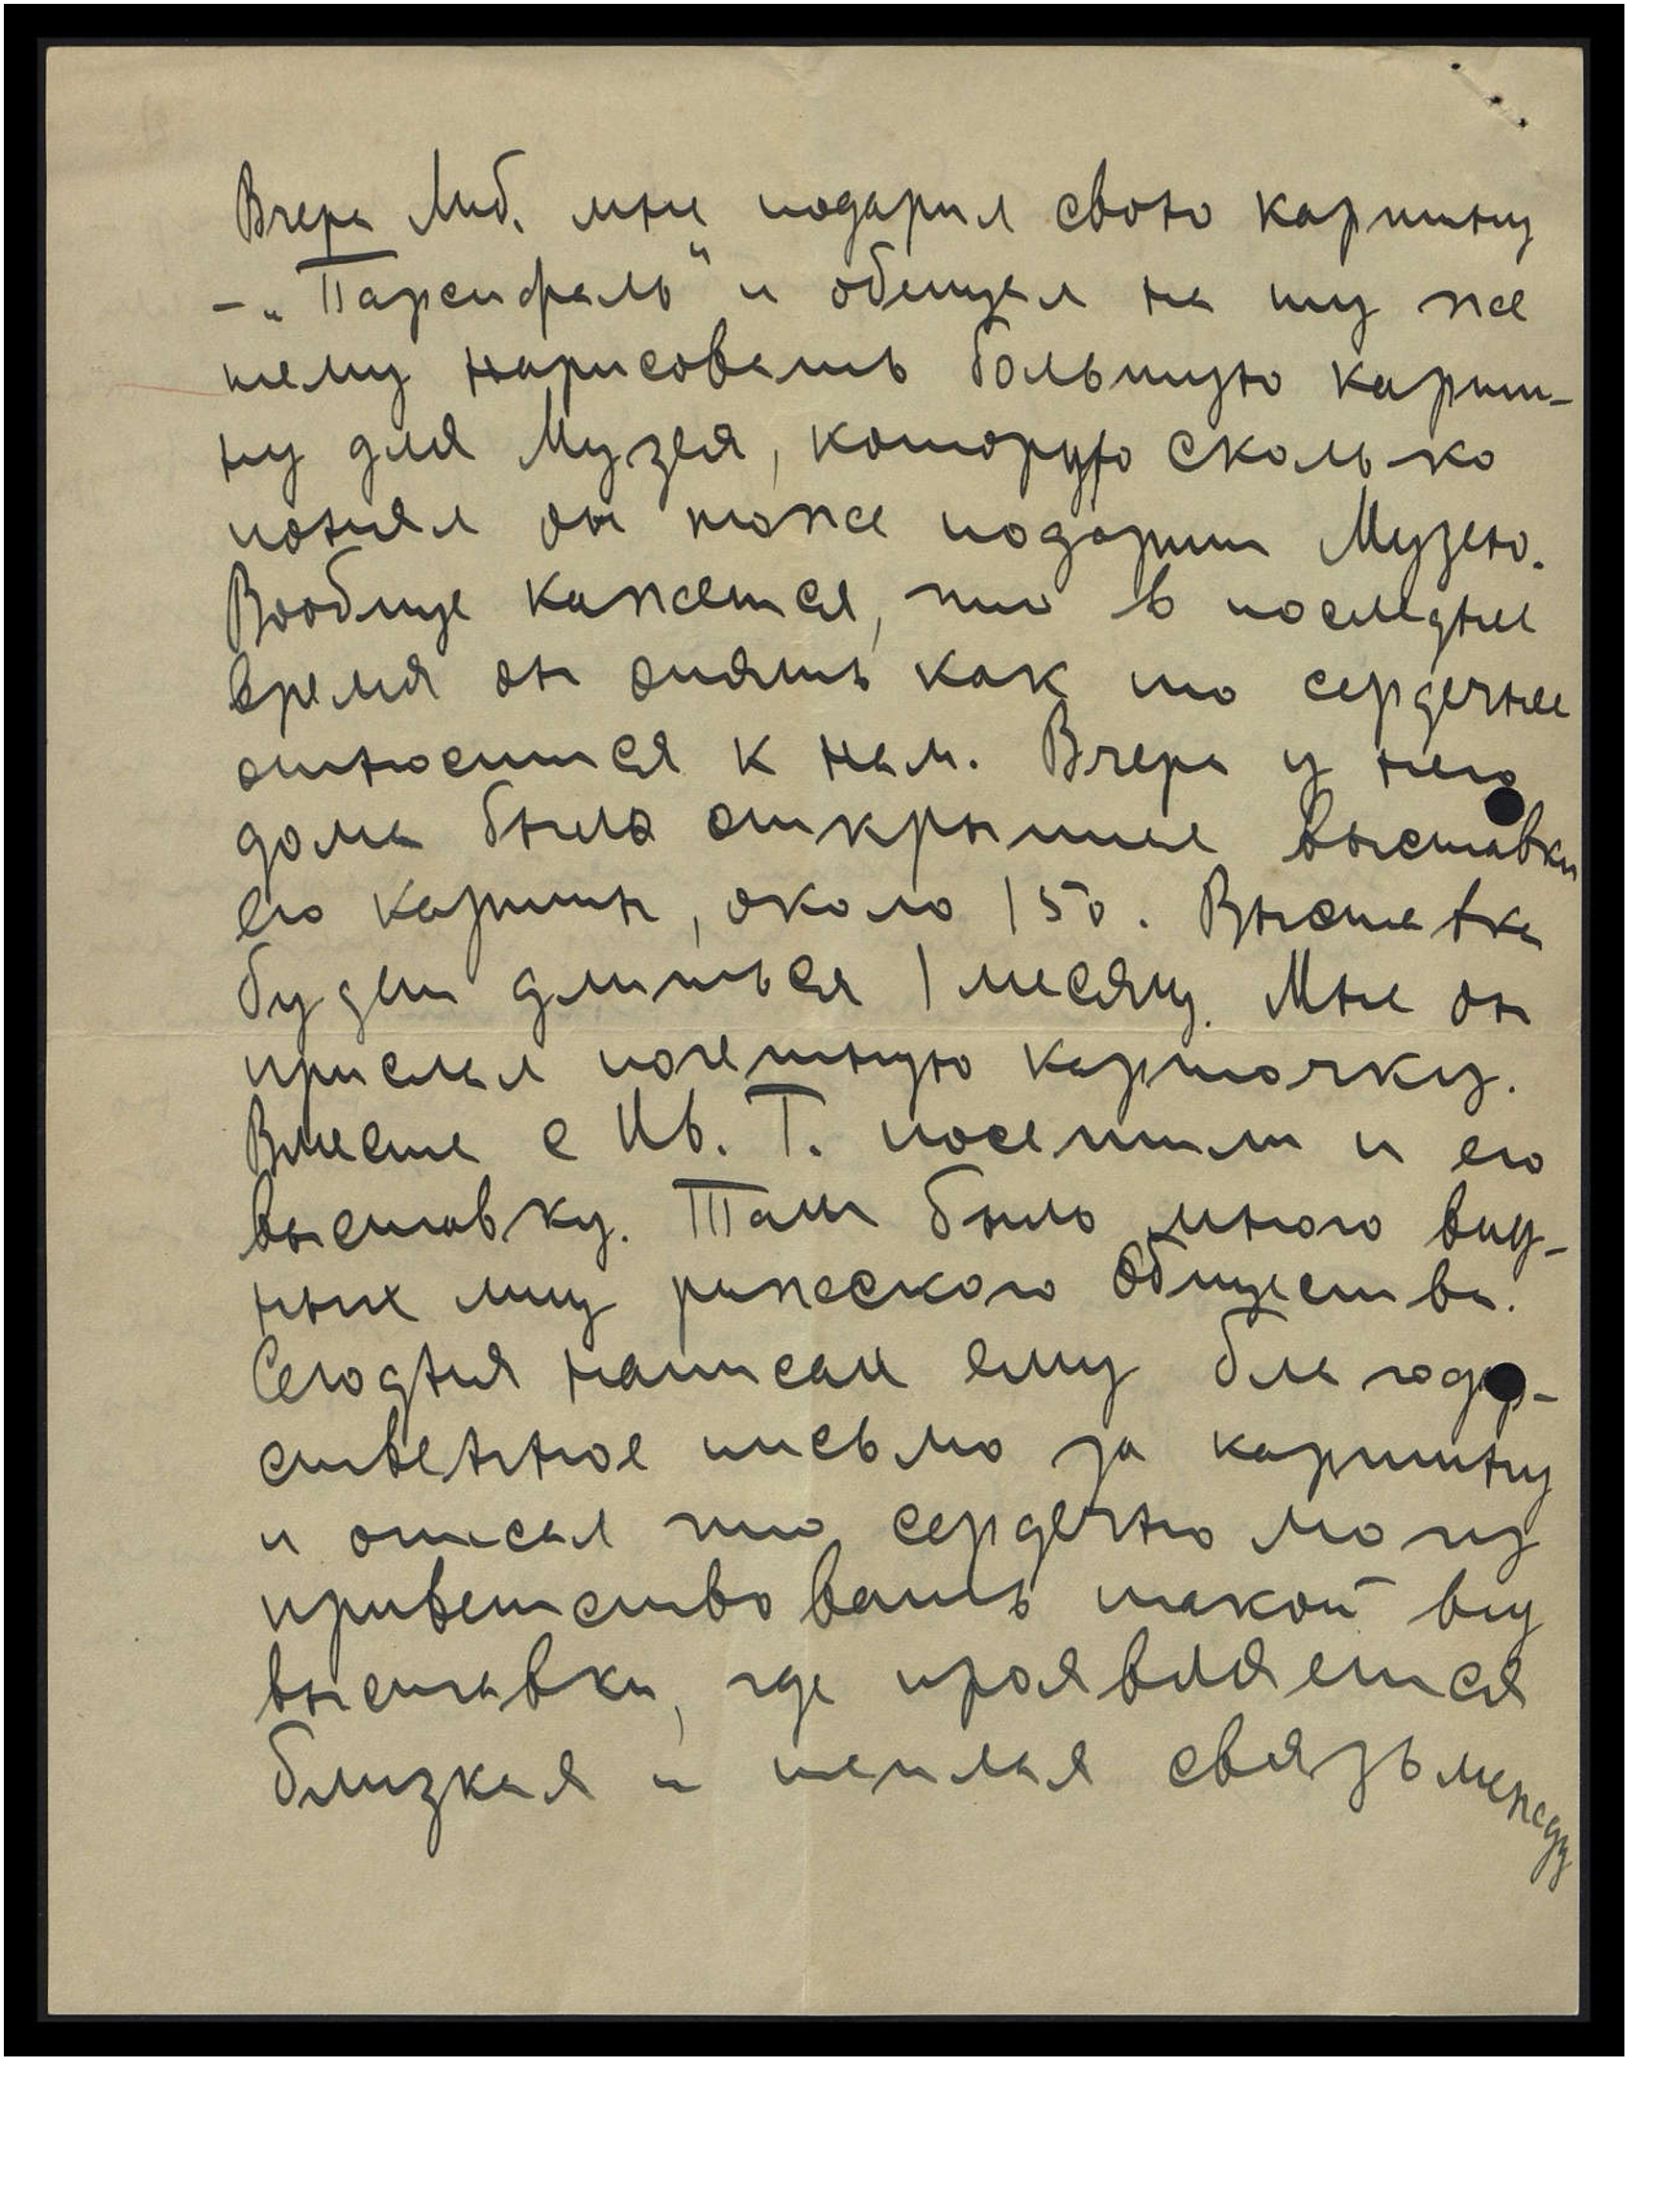 Вчера Либ. мне подарил свою картину
– „Парсифаль“ и обещал на ту же
тему нарисовать большую карти-
ну для Музея, которую сколько
понял он тоже подарит Музею.
Вообще кажется, что в последнее
время он опять как то сердечнее
относится к нам. Вчера у него
дома было открытие выставки
его картин, около 150. Выставка
будет длиться 1 месяц. Мне он
прислал почетную карточку.
Вместе с Ив. Г. посетили и его
выставку. Там было много вид-
ных лиц рижского общества.
Сегодня написал ему благодар-
ственное письмо за картину
и описал что сердечно могу
приветствовать такой вид
выставки, где проявляется
близкая и теплая связь между